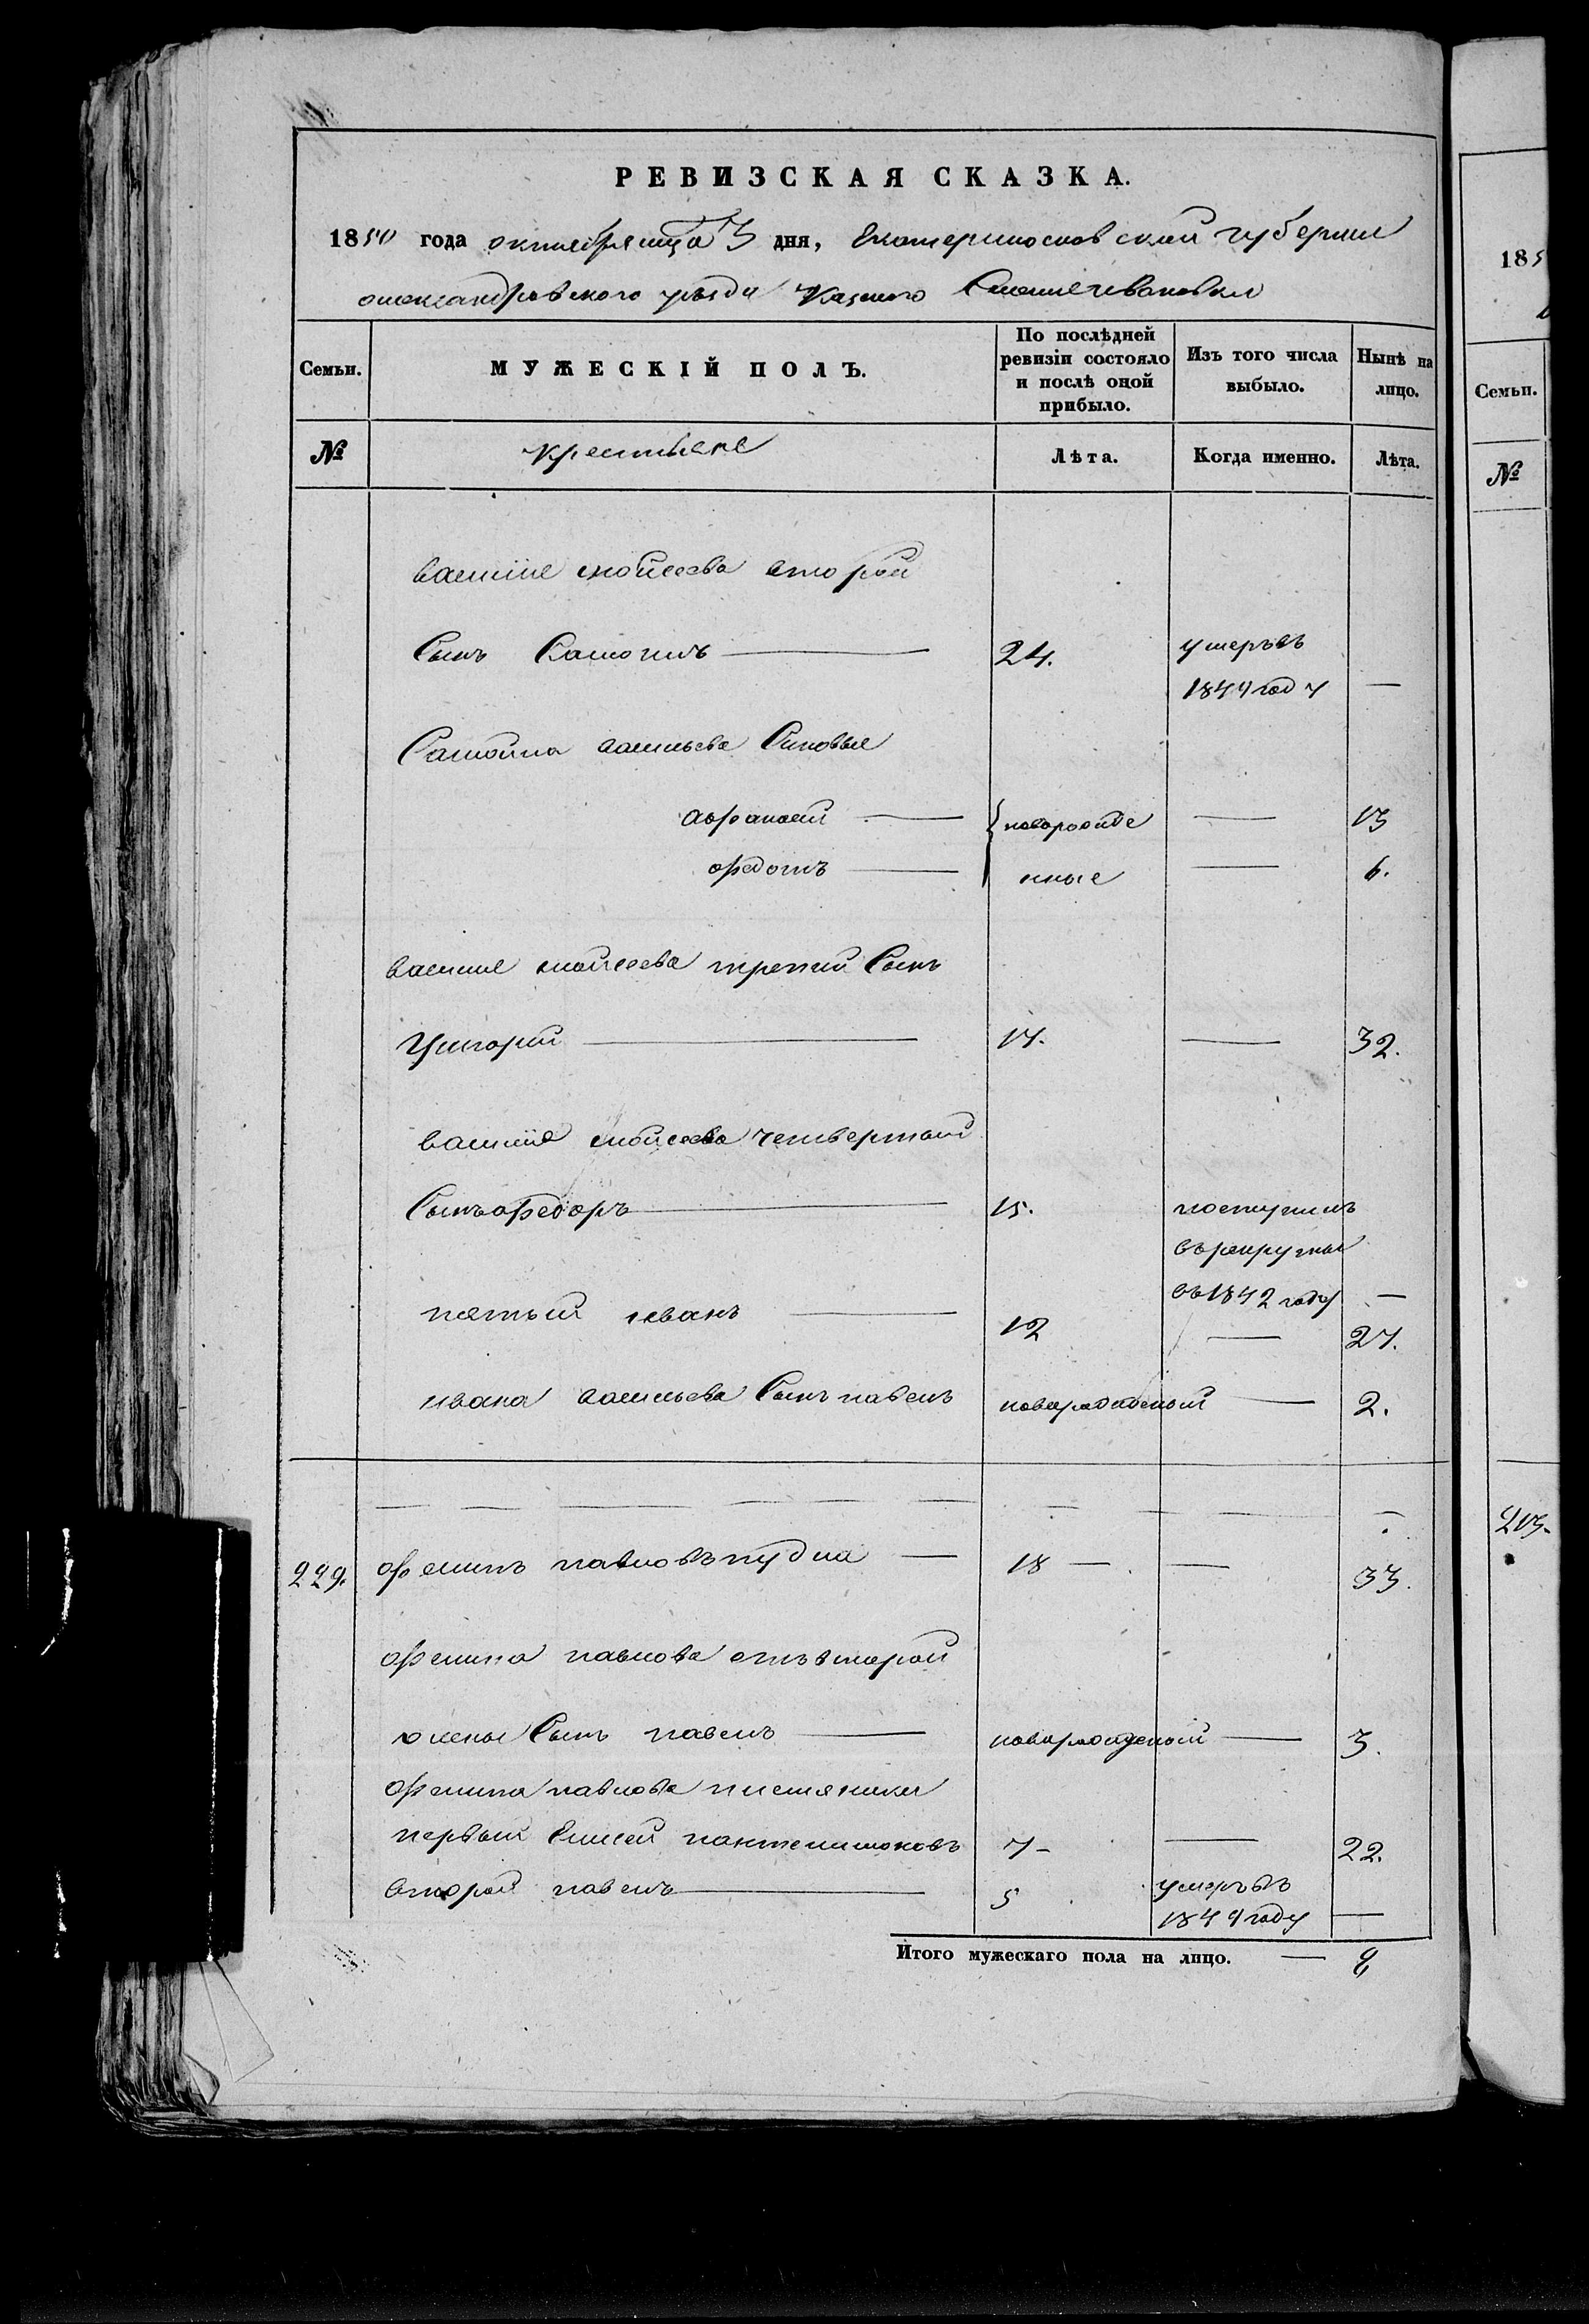 РЕВИЗСКАЯ СКАЗКА.
1850 года октября 3 дня, Екатеринославской губернии
александровского уезда
Семьи. МУЖЕСКІЙ ПОЛЪ. По послѣдней ревизіи состояло и послѣ оной прибыло. Изъ того числа выбыло. Нынѣ на лицо.
№ крестьяне Лѣта. Когда именно. Лѣта.
василие мойсеева второй
Сынъ 24. умеръ въ
1849 году —
Самойла васильева Сыновье
афанасий — новорожде — 13
федотъ — нные — 6.
василие мойсеева третий Сынъ
Григорий — 17. — 32.
василие мойсеева четвертый
Сынъ федоръ — 15. поступилъ
въ рекруты
въ 1842 году —
пятый иванъ — 12 — 27.
ивана васильева Сынъ павелъ новорожденый — 2.
229. павловъ 18 — — 33.
павлова отъ второй
жены Сынъ павелъ — новорожденый — 3.
павлова племяники
первый Елисей пантелимоновъ 7 — — 22.
второй павелъ — 5 умеръ въ
1849 году —
Итого мужескаго пола на лицо. —
185
Семьи.
№
213.